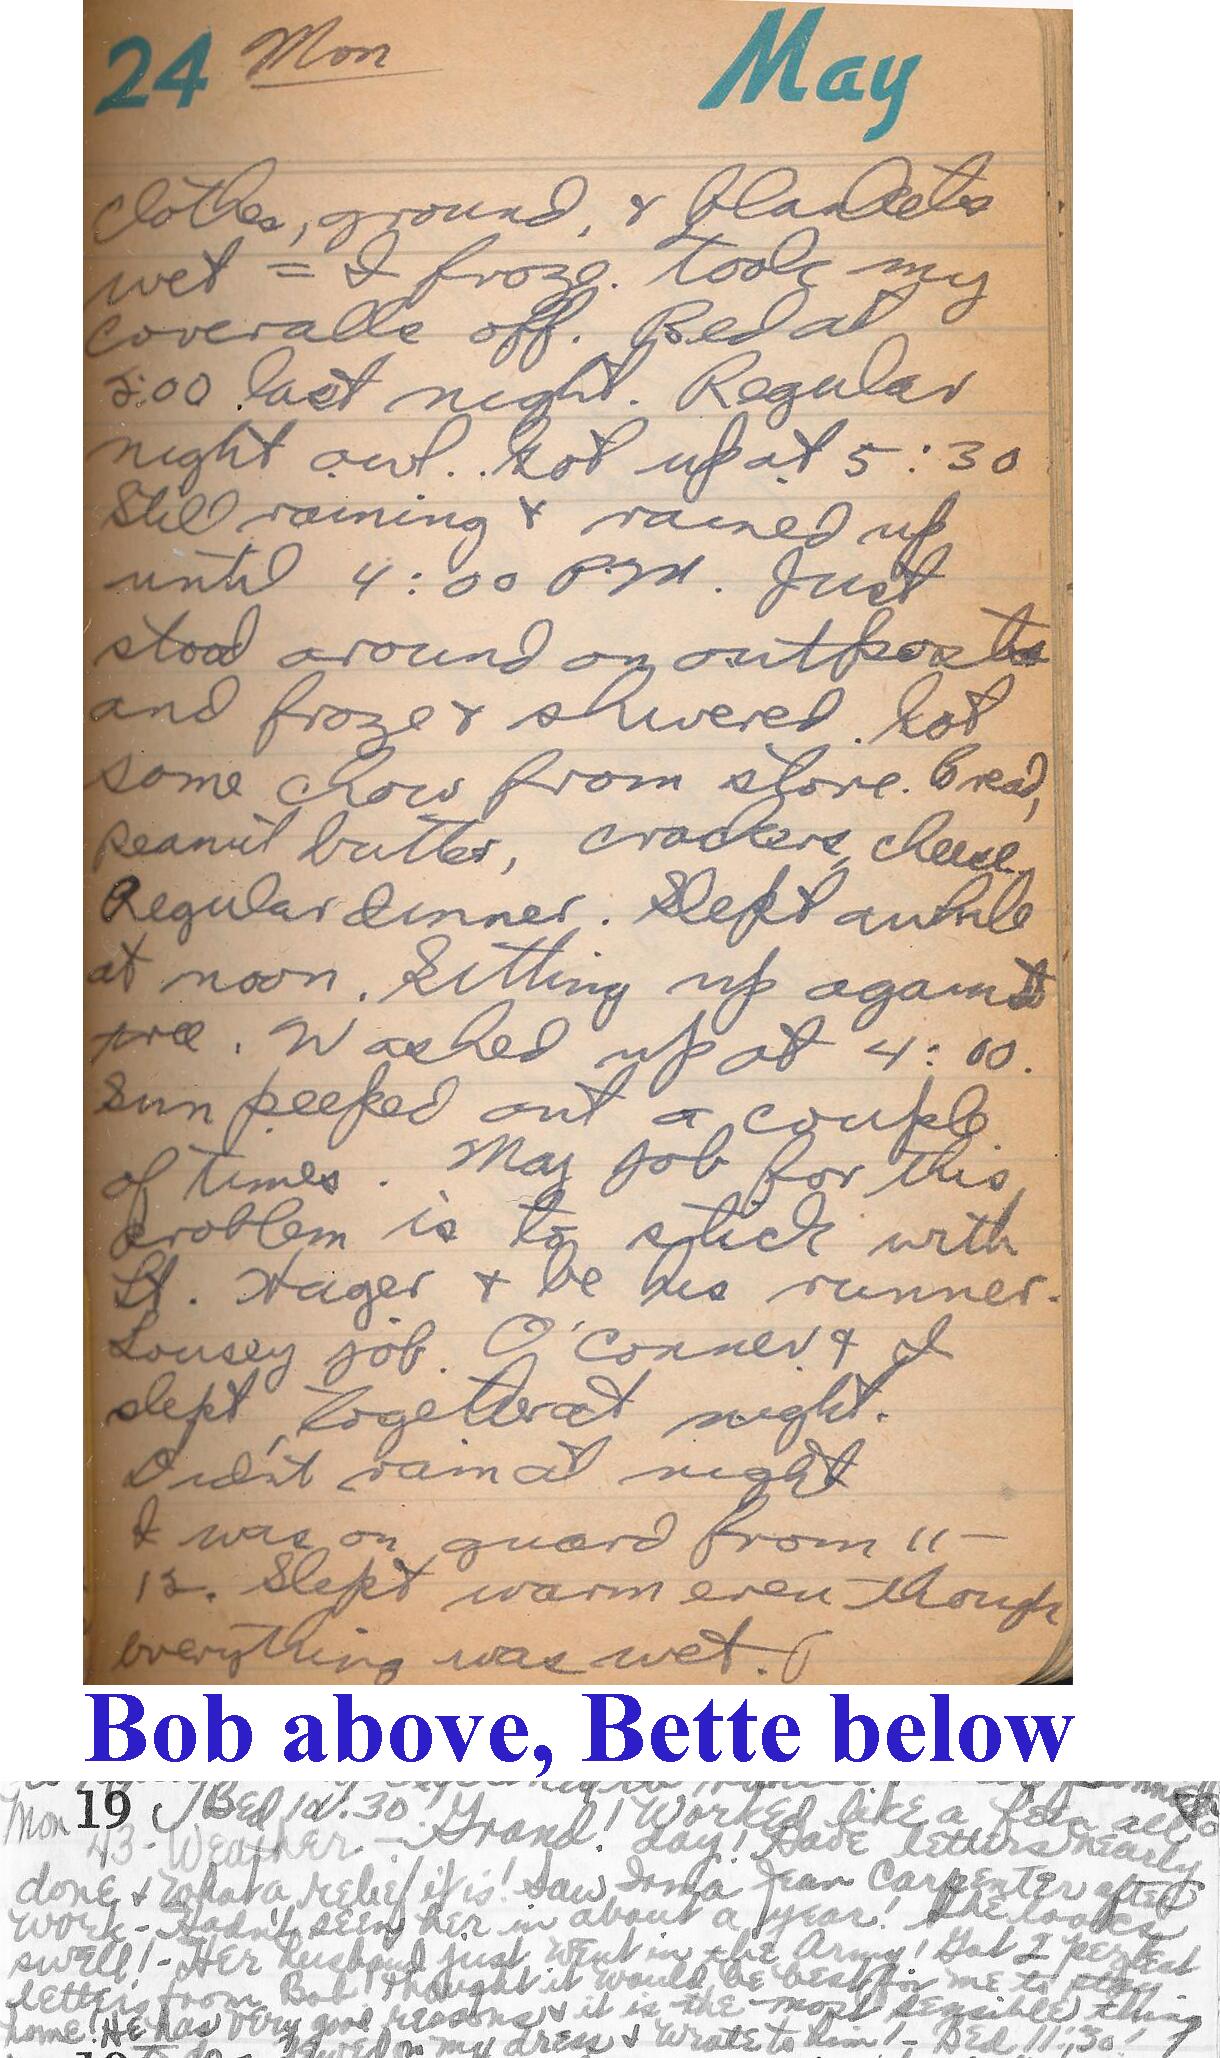 24 Mon May
clothes, ground, & blankets
wet = I froze. Took my
coveralls off. Bed at
2:00 last night. Regular
night owl. Got up at 5:30
Still raining & rained up
until 4:00 P.M. Just
stood around on outposts
and froze & shivered. Got
some chow from store. Bread,
peanut butter, crackers, cheese.
Regular dinner. Slept awhile
at noon. Sitting up against
tree. Washed up at 4:00.
Sun peeped out a couple
of times. May job for this
problem is to stick with
Lt. Hager & be his runner.
Lousey job. O'Conner & I
slept together at night.
Didn't rain at night
I was on guard from 11-
12. Slept warm even though
everything was wet.
Bob above, Bette below
Mon 19 Bed 12:30! Worked like a fein all
43 - Weather - Grand! day! Have letters nearly
done & what a relief it is! Saw Irma Jean Carpenter after
work - Hadn't seen her in about a year! She looks
swell! - Her husband just went in the Army! Got 1 perfect
letter from Bob! Thought it would be best for me to stay
home! He has very good reasons & it is the most sensible thing
to do. my dress & wrote to him! - Bed 11:30!